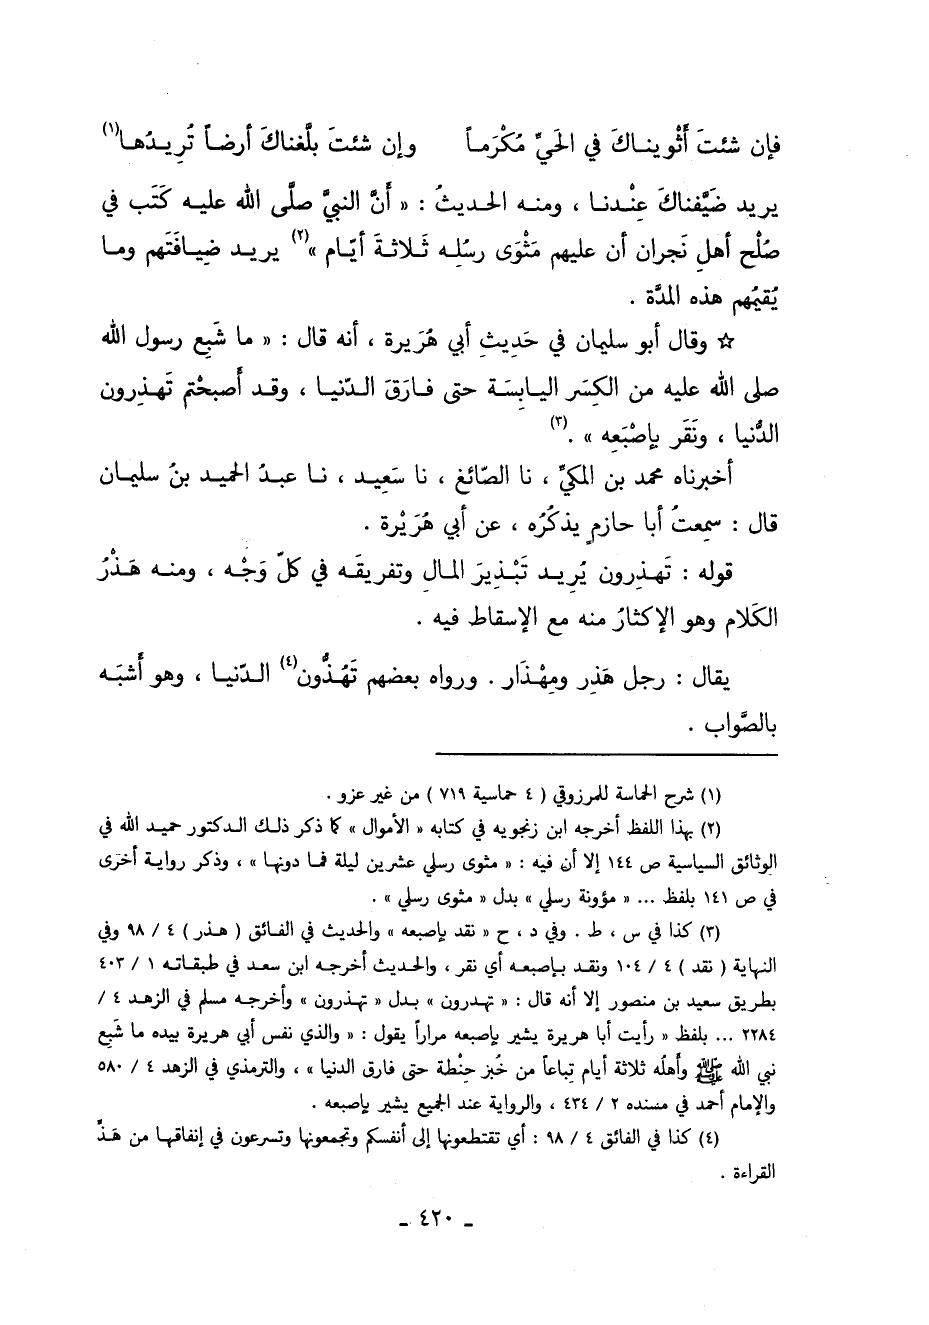 فإن شئتَ أَثْويناكَ في الحَيِّ مُكْرَماً وإن شئتَ بلَّغناكَ أرضاً تُريدُها(١)
يريد ضَيَّفناكَ عِنْدنا ، ومنه الحديثُ : « أَنَّ النبيَّ صلَّى الله عليه كَتَب في
صُلْح أهلِ نَجران أن عليهم مَثْوَى رسُلِه ثَلاثةَ أيّام »(٢) يريد ضِيافَتَهم وما
يُقيمُهم هذه المدَّة .
☆ وقال أبو سليمان في حَدِيثِ أبي هُرَيرة ، أنه قال : « ما شَبِع رسول الله
صلى الله عليه من الكِسَر اليابسَة حتى فارَقَ الدّنيا ، وقد أَصبحْتم تَهذِرون
الدُّنيا ، ونَقَر بإصْبَعِه » .(٣)
أخبرناه محمد بن المكيِّ ، نا الصّائغ ، نا سَعِيد ، نا عبدُ الحميد بنُ سليمان
قال : سمِعتُ أبا حازمٍ يذكُرُه ، عن أبي هُرَيْرة .
قوله : تَهذِرون يُرِيد تَبْذِيرَ المال وتفريقَه في كلّ وَجْه ، ومنه هَذْرُ
الكَلام وهو الإكثارُ منه مع الإسقاط فيه .
يقال : رجل هَذِر ومِهْذَار . ورواه بعضهم تَهُذُّون(٤) الدّنيا ، وهو أَشبَه
بالصَّواب .
(١) شرح الحماسة للمرزوقي ( ٤ حماسية ٧١٩ ) من غير عزو .
(٢) بهذا اللفظ أخرجه ابن زنجويه في كتابه « الأموال » كما ذكر ذلك الدكتور حميد الله في
الوثائق السياسية ص ١٤٤ إلا أن فيه : « مثوى رسلي عشرين ليلة فما دونها » ، وذكر رواية أخرى
في ص ١٤١ بلفظ ... « مؤونة رسلي » بدل « مثوى رسلي » .
(٣) كذا في س ، ط . وفي د ، ح « نقد بإصبعه » والحديث في الفائق ( هذر ) ٤ / ٩٨ وفي
النهاية ( نقد ) ٤ / ١٠٤ ونقد بإصبعه أي نقر ، والحديث أخرجه ابن سعد في طبقاته ١ / ٤٠٣
بطريق سعيد بن منصور إلا أنه قال : « تهدرون » بدل « تهذرون » وأخرجه مسلم في الزهد ٤ /
٢٢٨٤ ... بلفظ « رأيت أبا هريرة يشير بإصبعه مراراً يقول : « والذي نفس أبي هريرة بيده ما شَبِع
نبي الله ﷺ وأهلُه ثلاثة أيام تِباعاً من خُبز حِنْطة حتى فارق الدنيا » ، والترمذي في الزهد ٤ / ٥٨٠
والإمام أحمد في مسنده ٢ / ٤٣٤ ، والرواية عند الجميع يشير بإصبعه .
(٤) كذا في الفائق ٤ / ٩٨ : أي تقتطعونها إلى أنفسكم وتجمعونها وتسرعون في إنفاقها من هَذِّ
القراءة .
ـ ٤٢٠ ـ